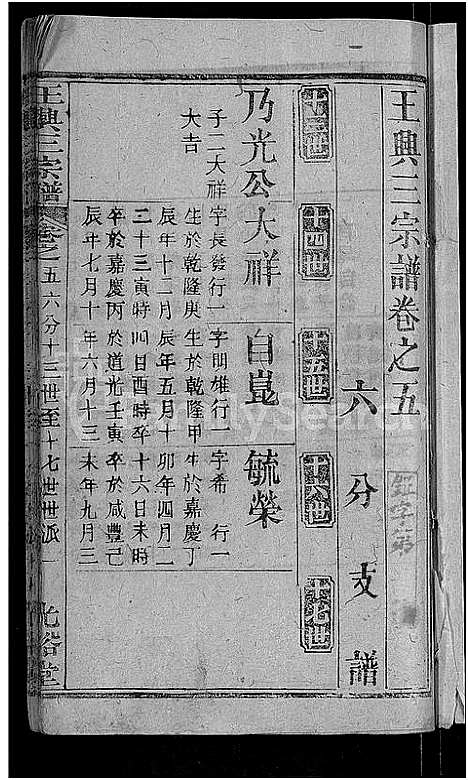 王興三宗譜卷之五
六分支譜
十三世
十四世
十五世
十六世
十七世
乃光公
子二大祥
大吉
大祥
字長發行一
生於乾隆庚
辰年十二月
二十三寅時
卒於嘉慶丙
辰年七月十
自崑
字明雄行一
生於乾隆甲
辰年五月十
四日酉時卒
於道光壬寅
年六月十三
毓榮
字希 行一
生於嘉慶丁
卯年四月二
十六日未時
卒於咸豐己
未年九月三
王興三宗譜
卷之五六分十三世至十七世世派 一
光裕堂